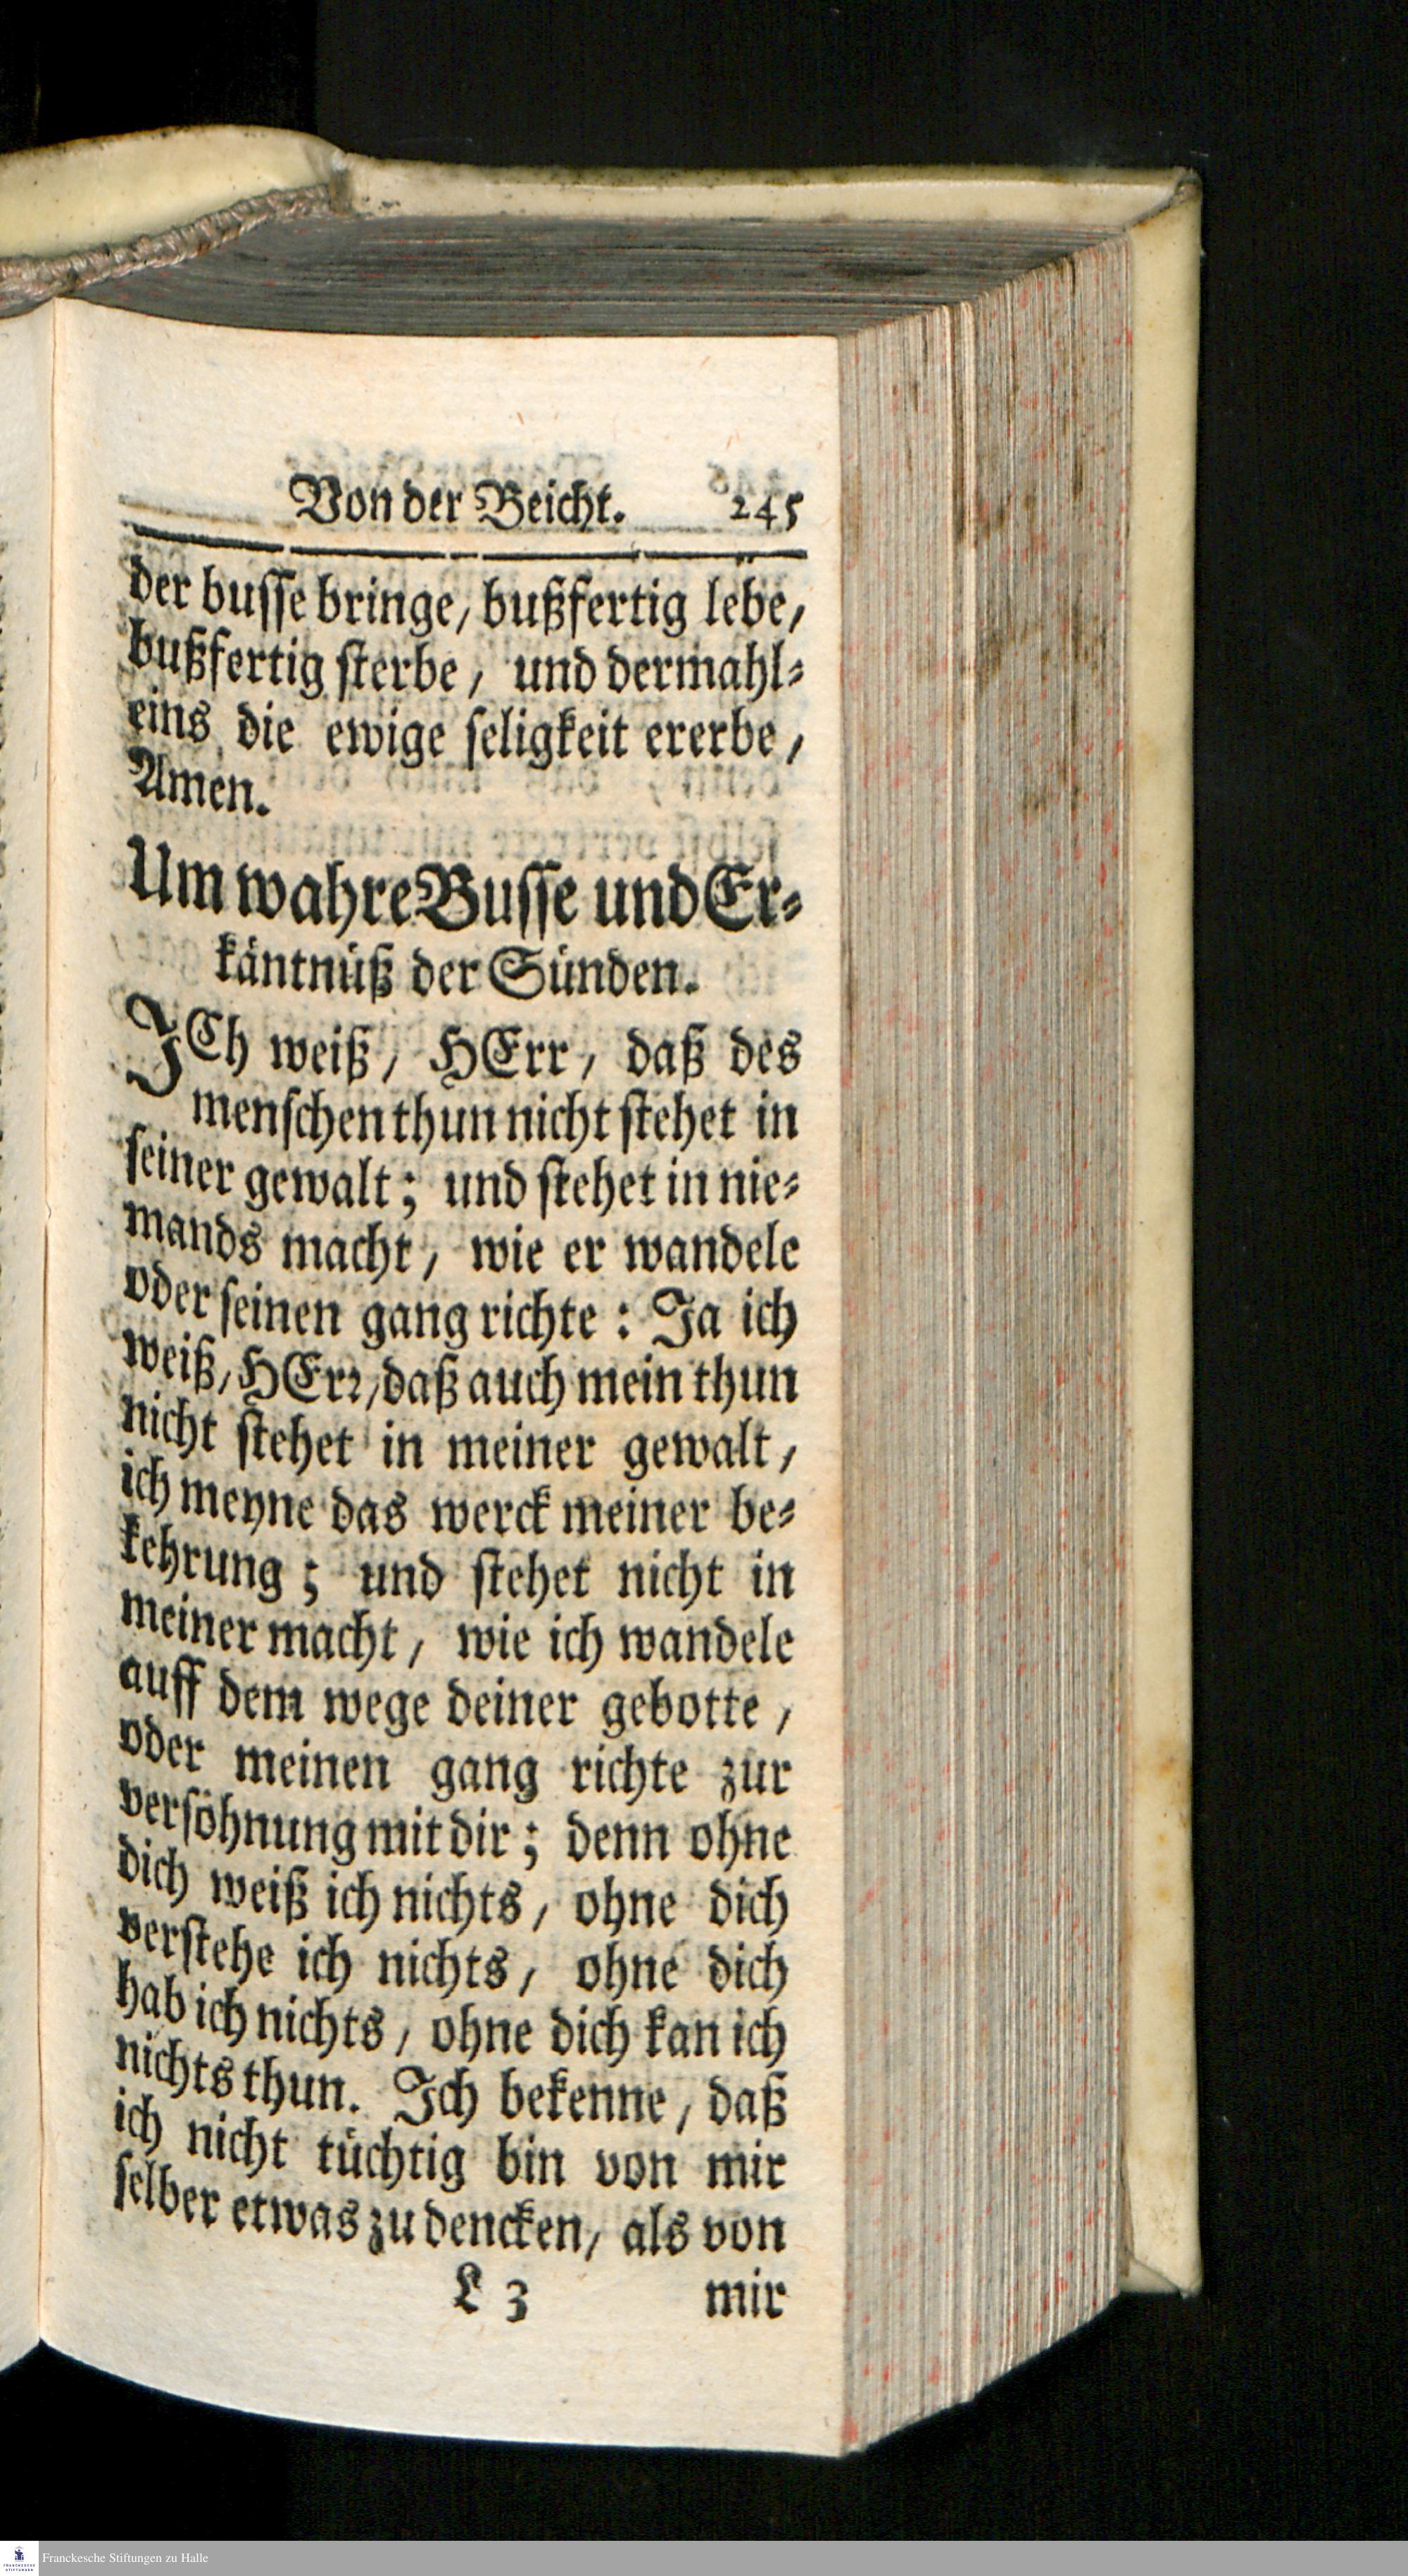 Von der Beicht. 245
der busse bringe, bußfertig lebe,
bußfertig sterbe, und dermahl-
eins die ewige seligkeit ererbe,
Amen.
Um wahre Busse und Er-
käntnüß der Sünden.
JCh weiß, HErr, daß des
menschen thun nicht stehet in
seiner gewalt; und stehet in nie-
mands macht, wie er wandele
oder seinen gang richte: Ja ich
weiß, HErr, daß auch mein thun
nicht stehet in meiner gewalt,
ich meyne das werck meiner be-
kehrung; und stehet nicht in
meiner macht, wie ich wandele
auff dem wege deiner gebotte,
oder meinen gang richte zur
versöhnung mit dir; denn ohne
dich weiß ich nichts, ohne dich
verstehe ich nichts, ohne dich
hab ich nichts, ohne dich kan ich
nichts thun. Ich bekenne, daß
ich nicht tüchtig bin von mir
selber etwas zu dencken, als von
L 3 mir
Franckesche Stiftungen zu Halle